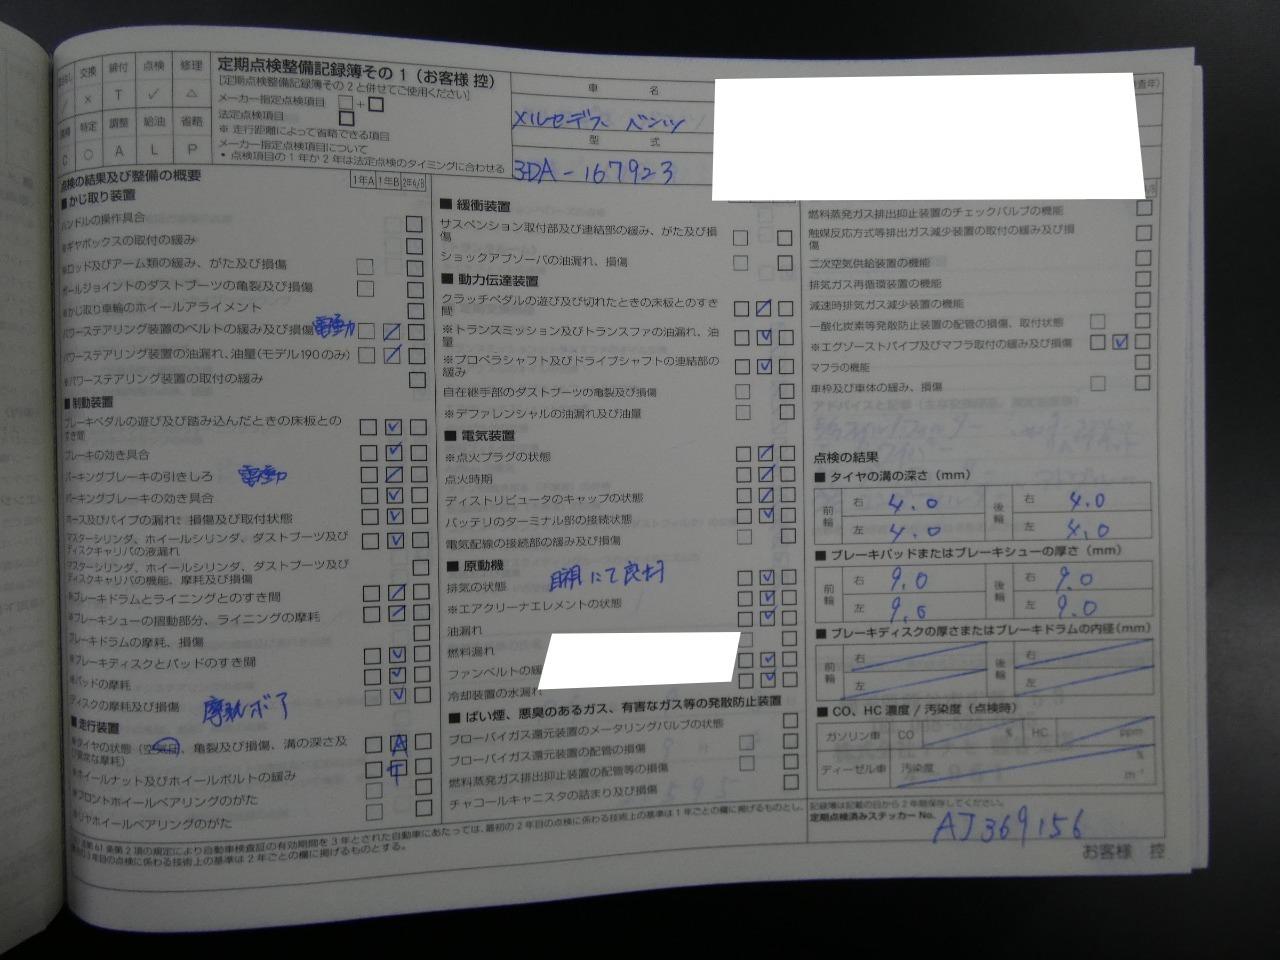 交換 締付 点検 修理
× T ✓ △
特定 調整 給油 省略
C ○ A L P
定期点検整備記録簿その1（お客様 控）
[定期点検整備記録簿その2と併せてご使用ください]
メーカー指定点検項目 □+□
法定点検項目 □
※ 走行距離によって省略できる項目
メーカー指定点検項目について
• 点検項目の1年か2年は法定点検のタイミングに合わせる
車 名
メルセデス ベンツ
型 式
3DA-167923
点検の結果及び整備の概要
1年A 1年B 2年A/B
■ かじ取り装置
ハンドルの操作具合
※ギヤボックスの取付の緩み
※ロッド及びアーム類の緩み、がた及び損傷
ボールジョイントのダストブーツの亀裂及び損傷
※かじ取り車輪のホイールアライメント
パワーステアリング装置のベルトの緩み及び損傷 電動
パワーステアリング装置の油漏れ、油量(モデル190のみ)
※パワーステアリング装置の取付の緩み
■ 制動装置
ブレーキペダルの遊び及び踏み込んだときの床板との
すき間 ✓
ブレーキの効き具合 ✓
パーキングブレーキの引きしろ 電動
パーキングブレーキの効き具合 ✓
ホース及びパイプの漏れ、損傷及び取付状態 ✓
マスターシリンダ、ホイールシリンダ、ダストブーツ及び
ディスクキャリパの液漏れ ✓
マスターシリンダ、ホイールシリンダ、ダストブーツ及び
ディスクキャリパの機能、摩耗及び損傷
※ブレーキドラムとライニングとのすき間
※ブレーキシューの摺動部分、ライニングの摩耗
ブレーキドラムの摩耗、損傷
※ブレーキディスクとパッドのすき間 ✓
※パッドの摩耗 ✓
ディスクの摩耗及び損傷 ✓
■ 走行装置
※タイヤの状態(空気圧、亀裂及び損傷、溝の深さ及
び異常な摩耗) A
※ホイールナット及びホイールボルトの緩み T
※フロントホイールベアリングのがた
※リヤホイールベアリングのがた
■ 緩衝装置
サスペンション取付部及び連結部の緩み、がた及び損
傷
ショックアブソーバの油漏れ、損傷
■ 動力伝達装置
クラッチペダルの遊び及び切れたときの床板とのすき
間
※トランスミッション及びトランスファの油漏れ、油
量 ✓
※プロペラシャフト及びドライブシャフトの連結部の
緩み ✓
自在継手部のダストブーツの亀裂及び損傷
※デファレンシャルの油漏れ及び油量
■ 電気装置
※点火プラグの状態
点火時期
ディストリビュータのキャップの状態
バッテリのターミナル部の接続状態 ✓
電気配線の接続部の緩み及び損傷
■ 原動機
目視にて良好
排気の状態 ✓
※エアクリーナエレメントの状態 ✓
油漏れ ✓
燃料漏れ
ファンベルトの緩 ✓
冷却装置の水漏れ ✓
■ ばい煙、悪臭のあるガス、有害なガス等の発散防止装置
ブローバイガス還元装置のメータリングバルブの状態
ブローバイガス還元装置の配管の損傷
燃料蒸発ガス排出抑止装置の配管等の損傷
チャコールキャニスタの詰まり及び損傷
燃料蒸発ガス排出抑止装置のチェックバルブの機能
触媒反応方式等排出ガス減少装置の取付の緩み及び損
傷
二次空気供給装置の機能
排気ガス再循環装置の機能
減速時排気ガス減少装置の機能
一酸化炭素等発散防止装置の配管の損傷、取付状態
※エグゾーストパイプ及びマフラ取付の緩み及び損傷 ✓
マフラの機能
車枠及び車体の緩み、損傷
点検の結果
■ タイヤの溝の深さ（mm）
前輪 右 4.0 後輪 右 4.0
左 4.0 左 4.0
■ ブレーキパッドまたはブレーキシューの厚さ（mm）
前輪 右 9.0 後輪 右 9.0
左 9.0 左 9.0
■ ブレーキディスクの厚さまたはブレーキドラムの内径(mm)
前輪 右 後輪 右
左 左
■ CO、HC 濃度 / 汚染度（点検時）
ガソリン車 CO % HC ppm
ディーゼル車 汚染度 %
m⁻¹
記録簿は記載の日から2年間保存してください。
定期点検済みステッカー No. AJ369156
お客様 控
第61条第2項の規定により自動車検査証の有効期間を3年とされた自動車にあたっては、最初の2年目の点検に係わる技術上の基準は1年ごとの欄に掲げるものとし、
3年目の点検に係わる技術上の基準は2年ごとの欄に掲げるものとする。